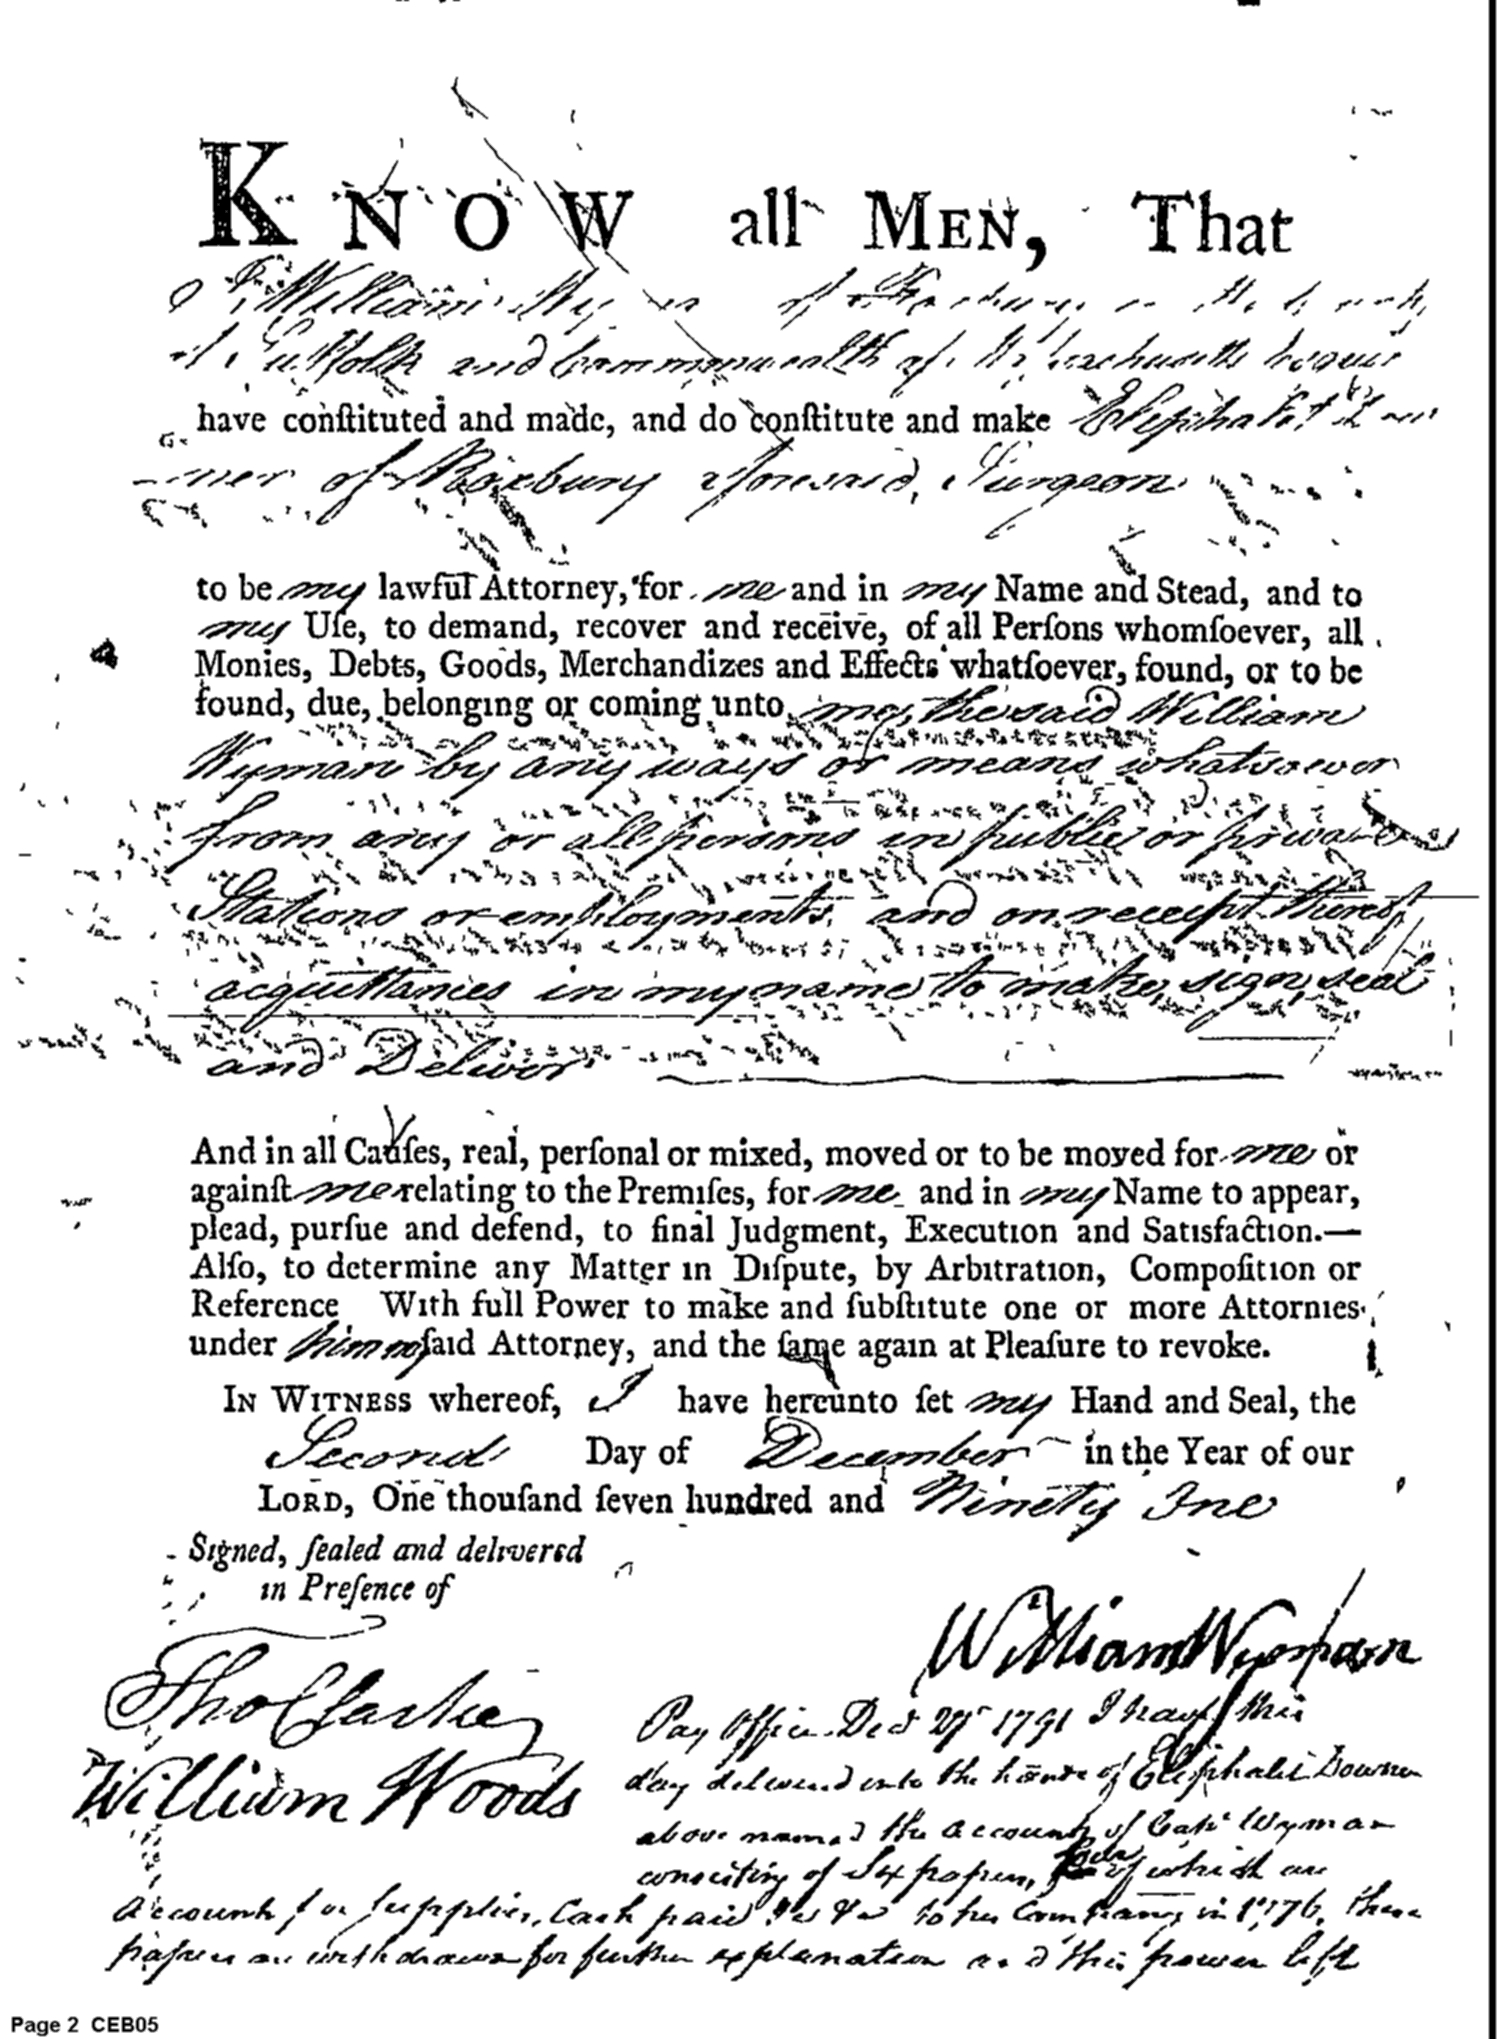 KNOW all MEN, That
I William Wyman of Roxbury in the County
of Suffolk and Commonwealth of Massachusetts Esquire
have conſtituted and made, and do conſtitute and make Eliphalet Dow
ner of Roxbury aforesaid, Surgeon
to be my lawful Attorney, for me and in my Name and Stead, and to
my Uſe, to demand, recover and receive, of all Perſons whomſoever, all
Monies, Debts, Goods, Merchandizes and Effects whatſoever, found, or to be
found, due, belonging or coming unto me, the said William
Wyman by any ways or means whatsoever
from any or all persons in public or private
Stations or employments, and on receipt thereof
acquittances in my name to make, sign, seal
and Deliver
And in all Cauſes, real, perſonal or mixed, moved or to be moved for me or
againſt me relating to the Premiſes, for me and in my Name to appear,
plead, purſue and defend, to final Judgment, Execution and Satisfaction.—
Alſo, to determine any Matter in Diſpute, by Arbitration, Compoſition or
Reference With full Power to make and ſubſtitute one or more Attornies
under him my ſaid Attorney, and the ſame again at Pleaſure to revoke.
IN WITNESS whereof, I have hereunto ſet my Hand and Seal, the
Second Day of December in the Year of our
LORD, One thouſand ſeven hundred and Ninety One
Signed, ſealed and delivered
in Preſence of
William Wyman
Tho Clarke
William Woods
Pay Office Decr 27 1791 I have this
day delivered into the hands of Eliphalet Downer
above named the accounts of Capt Wyman
consisting of Six papers, four of which are
accounts for supplies, Cash paid to his Company in 1776, these
papers are withdrawn for further explanation and this power left
Page 2 CEB05